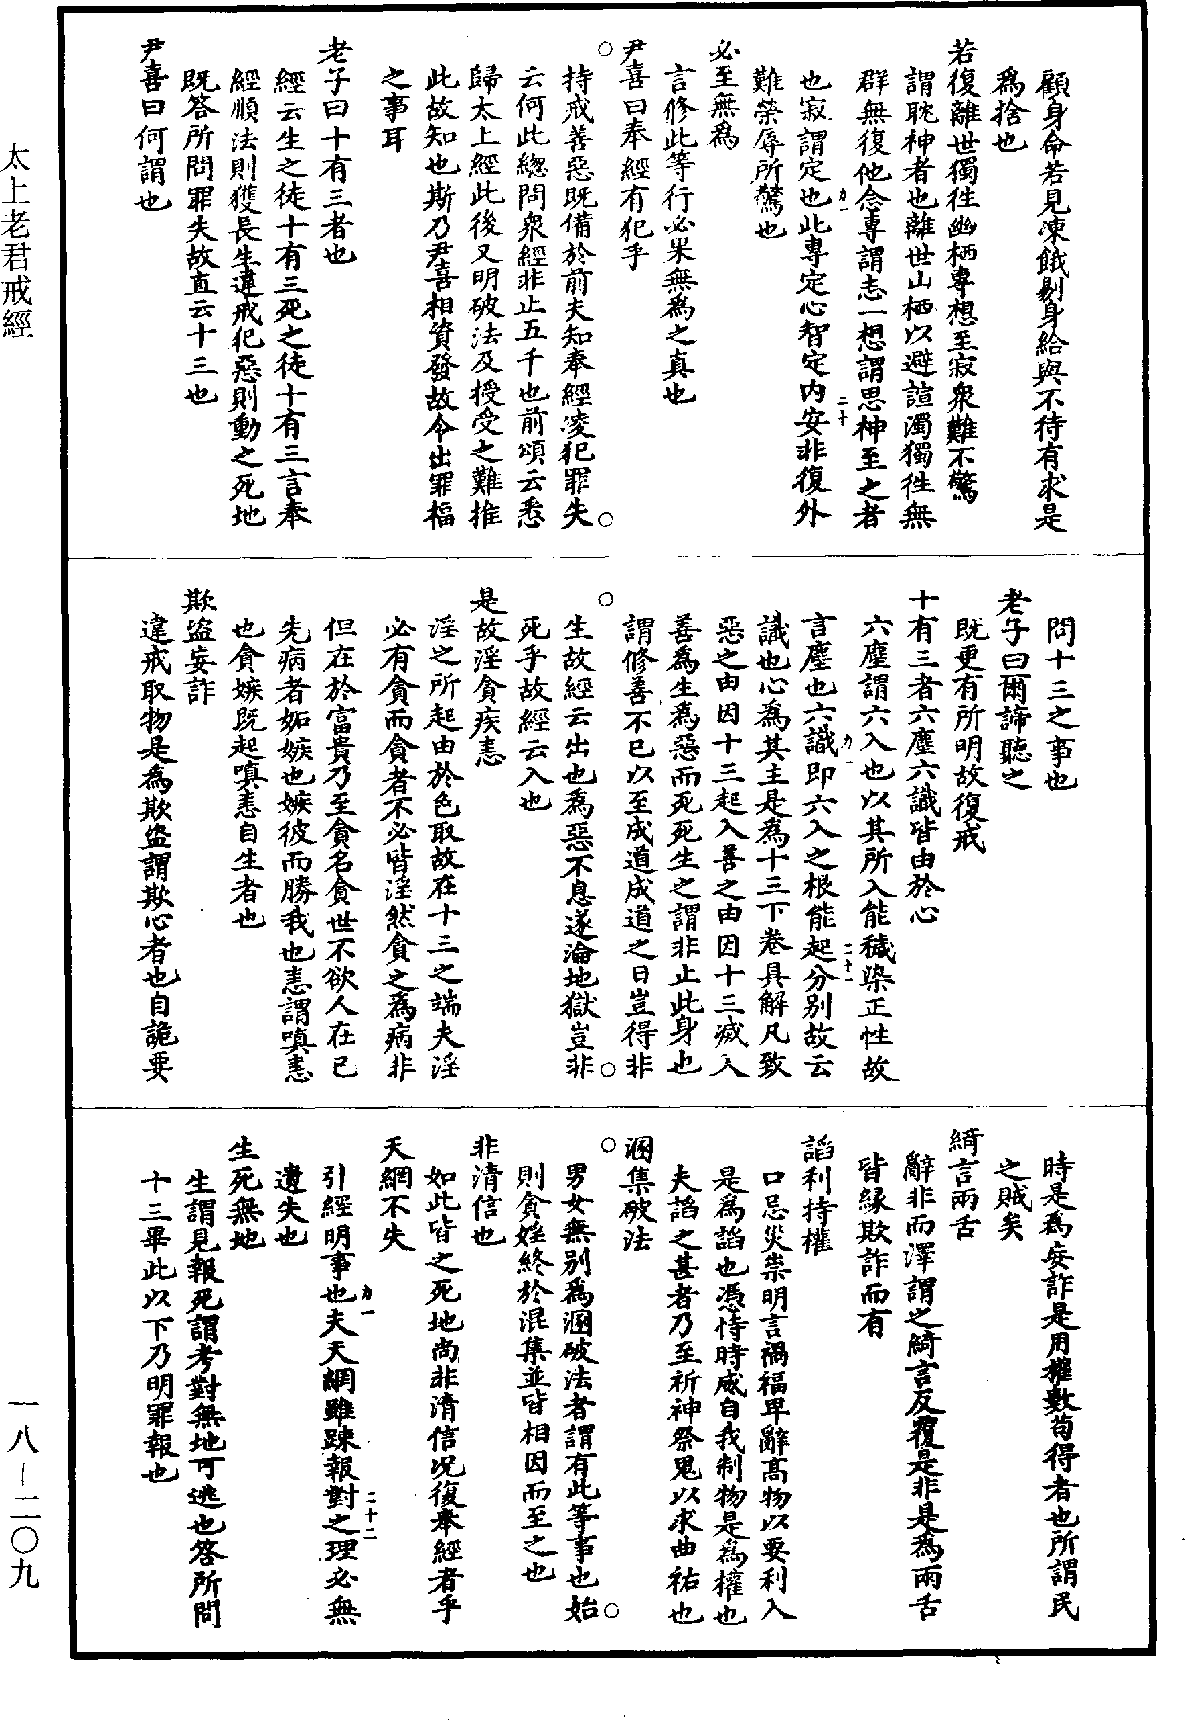 太上老君戒經
顧身命若見凍餓剔身給與不待有求是
爲捨也
若復離世獨徃幽栖專想至寂衆難不驚
謂耽神者也離世山栖以避諠濁獨徃無
群無復他念專謂志一想謂思神至之者
也寂謂定也此專定心智定內安非復外
難榮辱所驚也
必至無爲
言修此等行必果無爲之真也
尹喜曰奉經有犯乎
持戒善惡既備於前夫知奉經淩犯罪失
云何此緫問衆經非止五千也前頌云悉
歸太上經此後又明破法及授受之難推
此故知也斯乃尹喜相質發故令出罪福
之事耳
老子曰十有三者也
經云生之徒十有三死之徒十有三言奉
經順法則獲長生違戒犯惡則動之死地
既答所問罪失故直云十三也
尹喜曰何謂也
力一
二十
問十三之事也
老子曰爾諦聽之
既更有所明故復戒
十有三者六塵六識皆由於心
六塵謂六入也以其所入能穢染正性故
言塵也六識即六入之根能起分别故云
識也心爲其主是爲十三下卷具解凡致
惡之由因十三起入善之由因十三滅入
善爲生爲惡而死死生之謂非止此身也
謂修善不已以至成道成道之日豈得非
生故經云出也爲惡不息遂淪地獄豈非
死乎故經云入也
是故淫貪疾恚
淫之所起由於色取故在十三之端夫淫
必有貪而貪者不必皆淫然貪之爲病非
但在於富貴乃至貪名貪世不欲人在已
先病者妬嫉也嫉彼而勝我也恚謂嗔恚
也貪嫉既起嗔恚自生者也
欺盜妄詐
違戒取物是爲欺盜謂欺心者也自詭要
力一
二十一
時是爲妄詐是用權數苟得者也所謂民
之賊矣
綺言兩舌
辭非而澤謂之綺言反覆是非是爲兩舌
皆緣欺詐而有
謟利持權
口忌災祟明言禍福卑辭髙物以要利入
是爲謟也憑恃時威自我制物是爲權也
夫謟之甚者乃至祈神祭鬼以求曲祐也
溷集破法
男女無别爲溷破法者謂有此等事也始
則貪婬終於混集並皆相因而至之也
非清信也
如此皆之死地尚非清信况復奉經者乎
天網不失
引經明事也夫天網雖踈報對之理必無
遺失也
生死無地
生謂見報死謂考對無地可逃也答所問
十三畢此以下乃明罪報也
力一
二十二
一八—二〇九